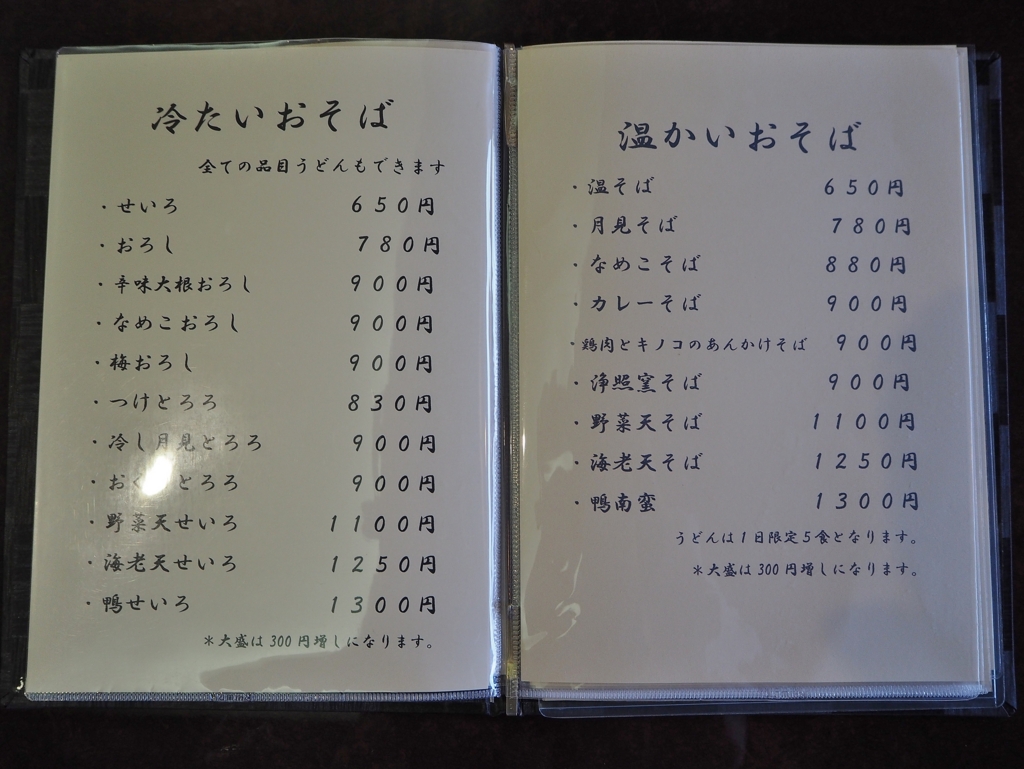 冷たいおそば
全ての品目うどんもできます
・せいろ 650円
・おろし 780円
・辛味大根おろし 900円
・なめこおろし 900円
・梅おろし 900円
・つけとろろ 830円
・冷し月見とろろ 900円
・おく とろろ 900円
・野菜天せいろ 1100円
・海老天せいろ 1250円
・鴨せいろ 1300円
＊大盛は300円増しになります。
温かいおそば
・温そば 650円
・月見そば 780円
・なめこそば 880円
・カレーそば 900円
・鶏肉とキノコのあんかけそば 900円
・浄照窯そば 900円
・野菜天そば 1100円
・海老天そば 1250円
・鴨南蛮 1300円
うどんは1日限定5食となります。
＊大盛は300円増しになります。